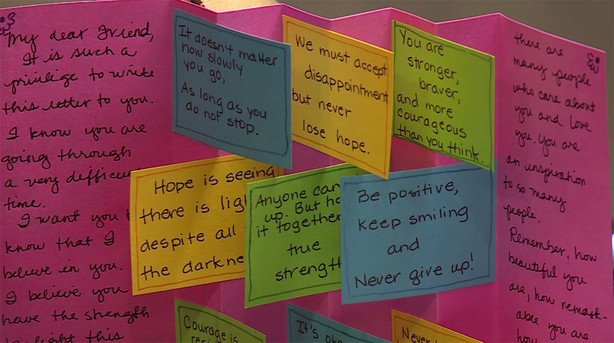 My dear friend,
It is such a
privilege to write
this letter to you.
I know you are
going through
a very difficu
time.
I want you
know that I
believe in you.
I believe you
have the strength
to fight this
It doesn't matter
how slowly
you go,
As long as you
do not stop.
We must accept
disappointment
but never
lose hope.
You are
stronger,
braver,
and more
courageous
than you think.
Hope is seeing
there is lig
despite all
the darkne
Anyone can
up. But ho
it together
true
strength
Be positive,
keep smiling
and
Never give up!
Courage is
It's ok
Never
there are
many people
who care about
you and love
you. You are
an inspiration
to so many
people.
Remember, how
beautiful you
are, how remark-
able you are